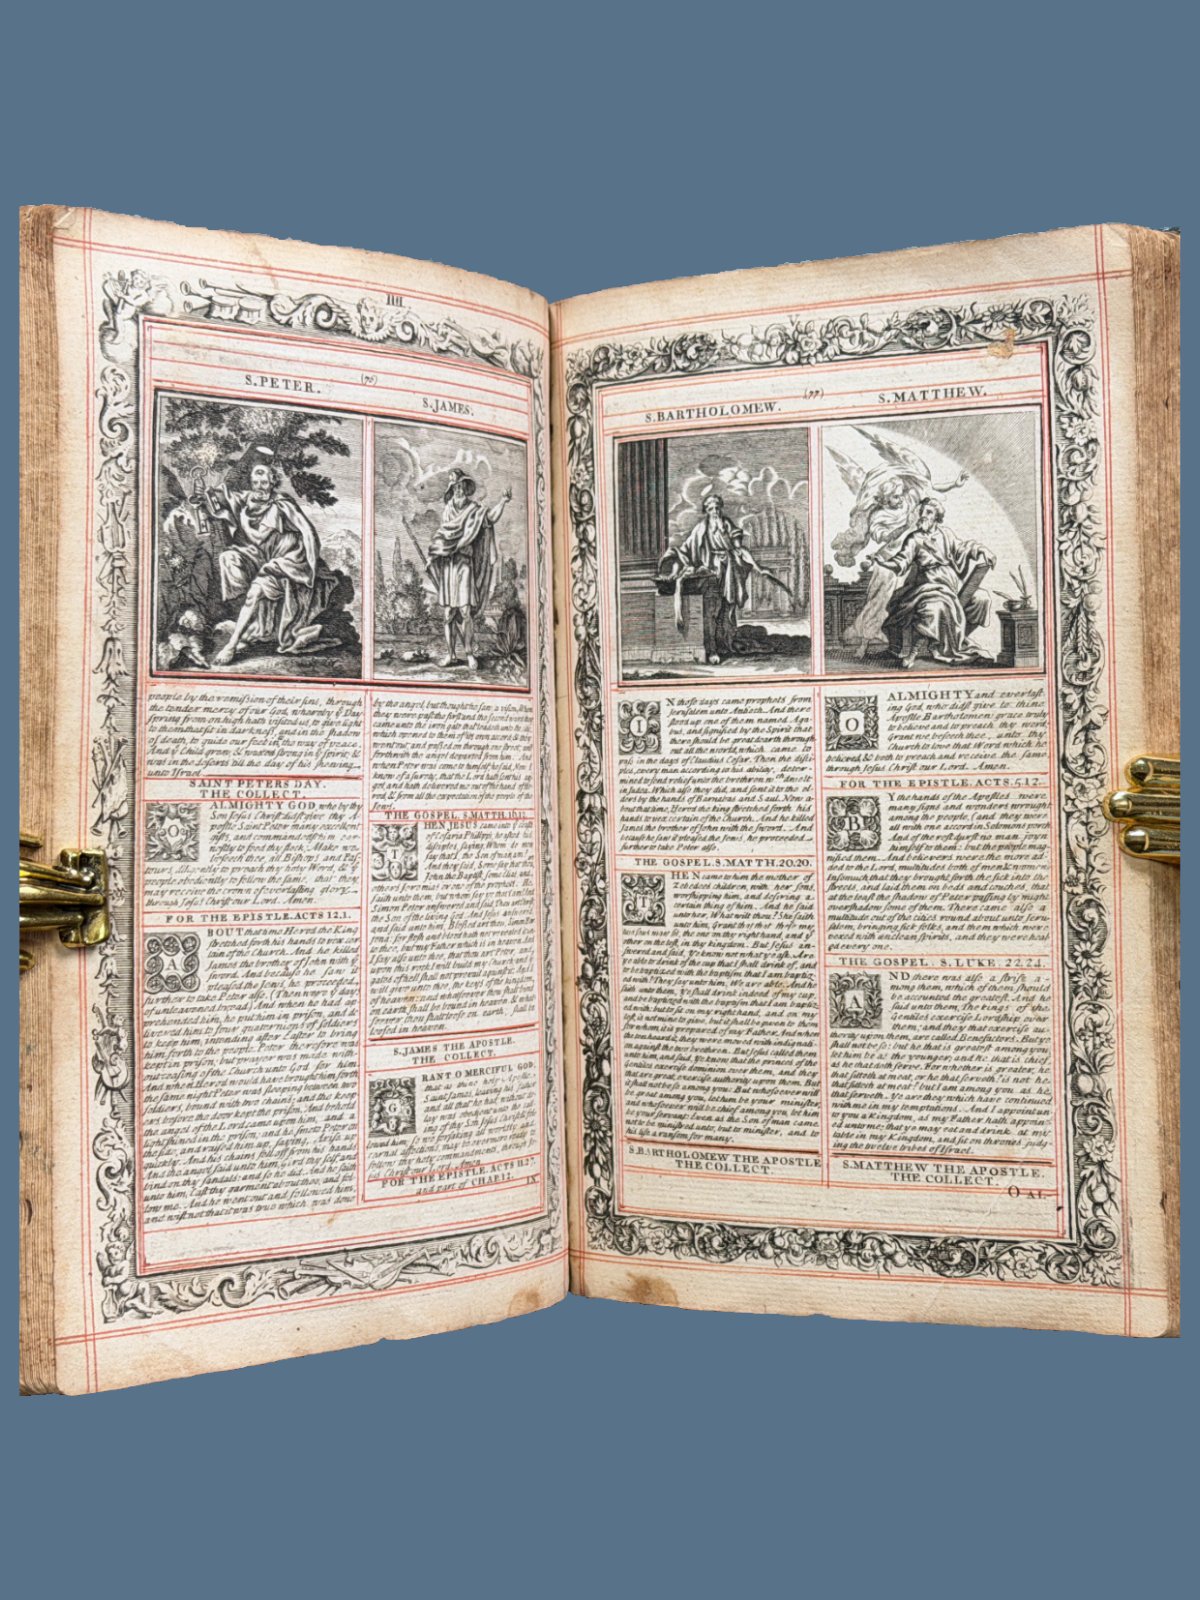 IIII.
(76)
S. PETER.
S. JAMES.
people by the remission of their sins, through
the tender mercy of our God, whereby yͤ Day
spring from on high hath visited us; to give light
to them that sit in darkness, and in the shadow
of death, to guide our feet in the way of peace.
And yͤ Child grew, & waxed strong in yͤ spirit; &
was in the deserts till the day of his shewing
unto Israel.
SAINT PETERS DAY.
THE COLLECT.
O ALMIGHTY GOD, who by thy
Son Jesus Christ didst give thy A-
postle Saint Peter many excellent
gifts, and commandedst him ear-
nestly to feed thy flock, Make we
beseech thee, all Bishops and Pas-
tours, diligently to preach thy holy Word, & yͤ
people obediently to follow the same, that they
may receive the crown of everlasting glory
through Jesus Christ our Lord. Amen.
FOR THE EPISTLE. ACTS 12.1.
ABOUT that time Herod the King
stretched forth his hands to vex cer-
tain of the Church. And he killed
James the brother of John with yͤ
sword. And because he saw it
pleased the Jews, he proceeded
further to take Peter also. (Then were yͤ days
of unleavened bread.) And when he had ap-
prehended him, he put him in prison, and de
livered him to four quaternions of soldiers
to keep him; intending after Easter to bring
him forth to the people. Peter therefore was
kept in prison; but prayer was made with-
out ceasing of the Church unto God for him.
And when Herod would have brought him forth
the same night Peter was sleeping between two
soldiers, bound with two chains; and the keep
ers before the door kept the prison. And behold
the angel of the Lord came upon him, and a
light shined in the prison; and he smote Peter on
the side, and raised him up, saying, Arise up
quickly. And his chains fell off from his hands
And the angel said unto him, Gird thy self and
bind on thy sandals: and so he did. And he saith
unto him, Cast thy garment about thee, and fol-
low me. And he went out and followed him,
and wist not that it was true which was done
by the angel, but thought he saw a vision. When
they were past the first and the second ward they
came unto the iron gate that leadeth unto the city,
which opened to them of its own accord; & they
went out, and passed on through one street, and
forthwith the angel departed from him. And
when Peter was come to himself, he said, Now I
know of a surety, that the Lord hath sent his an-
gel, and hath delivered me out of the hand of He-
rod, & from all the expectation of the people of the
Jews.
THE GOSPEL. S. MATTH. 16.13.
THEN JESUS came into yͤ coasts
of Cesaria Philippi, he asked his
disciples, saying, Whom do men
say that I, the Son of man am?
And they said, Some say thou art
John the Baptist, some Elias, and
others Jeremias or one of the prophets. He
saith unto them, but whom say ye that I am? And
Simon Peter answered and said, Thou art Christ
the Son of the living God. And Jesus answered
and said unto him, Blessed art thou, Simon Bar
jona: for flesh and blood hath not revealed it un-
to thee, but my Father which is in heaven. And
I say also unto thee, that thou art Peter, and
upon this rock I will build my Church: and yͤ
gates of hell shall not prevail against it. And I
will give unto thee, the keys of the kingdom
of heaven: and whatsoever thou shalt bind
on earth shall be bound in heaven; & what-
soever thou shalt loose on earth, shall be
loosed in heaven.
S. JAMES THE APOSTLE.
THE COLLECT.
GRANT O MERCIFUL GOD,
that as thine holy Apostle
Saint James, leaving his father
and all that he had, without de-
lay was obedient unto the cal
ling of thy Son Jesus Christ, & follo
wed him; so we forsaking all worldly and
carnal affections, may be evermore ready to
follow thy holy commandments, through Je-
sus Christ our Lord. Amen.
FOR THE EPISTLE. ACTS 11.27.
and part of CHAP. 12.
IN
V.
(77)
S. BARTHOLOMEW.
S. MATTHEW.
IN those days came prophets from
Jerusalem unto Antioch. And there
stood up one of them named Aga-
bus, and signified by the Spirit that
there should be great dearth through-
out all the world, which came to
pass in the days of Claudius Cesar. Then the disci-
ples, every man according to his ability, deter-
mined to send relief unto the brethren wᶜʰ dwelt
in Judea. Which also they did, and sent it to the el-
ders by the hands of Barnabas and Saul. Now a-
bout that time, Herod the king stretched forth his
hands to vex certain of the Church. And he killed
James the brother of John with the sword. And
because he saw it pleased the Jews, he proceeded
further to take Peter also.
THE GOSPEL. S. MATTH. 20.20.
THEN came to him the mother of
Zebedees children, with her sons,
worshipping him, and desiring a
certain thing of him. And he said
unto her, What wilt thou? She saith
unto him, Grant that these my
two sons may sit, the one on thy right hand, and yͤ
other on the left, in thy kingdom. But Jesus an-
swered and said, Ye know not what ye ask. Are
ye able to drink of the cup that I shall drink of, and
to be baptized with the baptism that I am baptiz-
ed with? They say unto him, We are able. And he
saith unto them, Ye shall drink indeed of my cup,
and be baptized with the baptism that I am baptiz-
ed with: but to sit on my right hand, and on my
left, is not mine to give, but it shall be given to them
for whom it is prepared of my Father. And when
the ten heard it, they were moved with indignati-
on against the two brethren. But Jesus called them
unto him, and said, Ye know that the princes of the
Gentiles exercise dominion over them, and they
that are great, exercise authority upon them. But
it shall not be so among you: But whosoever will
be great among you, let him be your minister,
and whosoever will be chief among you, let him
be your servant: Even as the Son of man came
not to be ministred unto, but to minister, and to
his life a ransom for many.
S. BARTHOLOMEW THE APOSTLE
THE COLLECT.
O ALMIGHTY and everlast-
ing God, who didst give to thine
Apostle Bartholomew grace truly
to believe and to preach thy word;
Grant we beseech thee, unto thy
Church to love that Word which he
believed, & both to preach and receive the same
through Jesus Christ our Lord. Amen.
FOR THE EPISTLE. ACTS. 5.12.
BY the hands of the Apostles were
many signs and wonders wrought
among the people, (and they were
all with one accord in Solomons porch
And of the rest durst no man joyn
himself to them: but the people mag-
nified them. And believers were the more ad-
ded to the Lord, multitudes both of men & women:
Insomuch that they brought forth the sick into the
streets, and laid them on beds and couches, that
at the least the shadow of Peter passing by might
overshadow some of them. There came also a
multitude out of the cities round about unto Jeru-
salem, bringing sick folks, and them which were
vexed with unclean spirits, and they were heal
ed every one.
THE GOSPEL. S. LUKE. 22.24.
AND there was also a strife a-
mong them, which of them should
be accounted the greatest. And he
said unto them, The kings of the
Gentiles exercise Lordship over
them; and they that exercise au-
thority upon them, are called Benefactors. But ye
shall not be so: but he that is greatest among you,
let him be as the younger; and he that is chief
as he that doth serve. For whether is greater, he
that sitteth at meat, or he that serveth? is not he
that sitteth at meat? but I am among you as he
that serveth. Ye are they which have continued
with me in my temptations. And I appoint un
to you a Kingdom, as my Father hath appoint
ed unto me; that ye may eat and drink at my
table in my Kingdom, and sit on thrones judg-
ing the twelve tribes of Israel.
S. MATTHEW THE APOSTLE.
THE COLLECT.
O AL